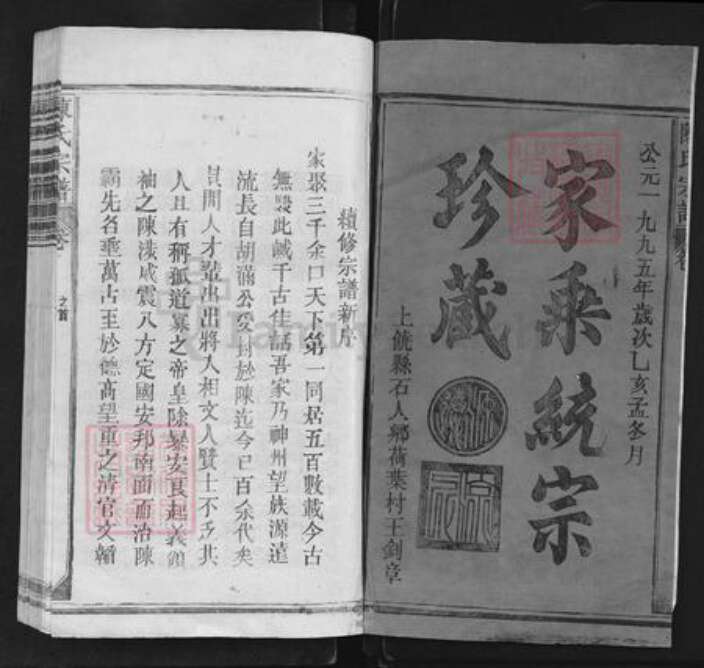 公元一九九五年歲次乙亥孟冬月
家乘統宗
珍藏
上饒縣石人鄉荷葉村王劍章
續修宗譜新序
家聚三千余口天下第一同居五百數載今古
無雙此誠千古佳話吾家乃神州望族源遠
流長自胡滿公受封於陳迄今已百余代矣
其間人才輩出出將入相文人賢士不乏其
人且有稱孤道寡之帝皇除暴安良起義領
袖之陳涉威震八方定國安邦南面而治陳
霸先名垂萬古至於德高望重之清官文翰
陳氏宗譜
之首